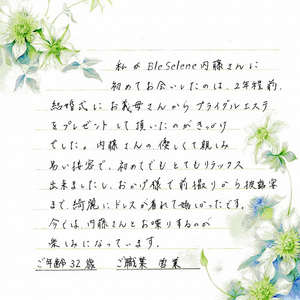 私が BleSelene 内藤さんに
初めてお会いしたのは、2年程前、
結婚式にお義母さんからブライダルエステ
をプレゼントして頂いたのがきっかけ
でした。内藤さんの優しくて親しみ
易い接客で、初めてでもとてもリラックス
出来ましたし、おかげ様で前撮りから披露宴
まで、綺麗にドレスが着れて嬉しかったです。
今では、内藤さんとお喋りするのが
楽しみになっています。
ご年齢 32 歳 ご職業 営業